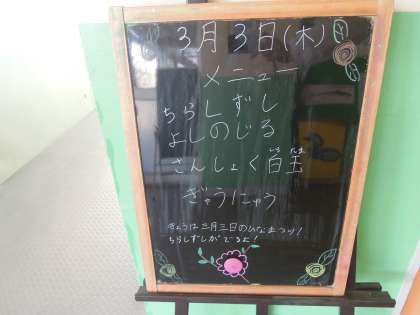 3月3日(木)
メニュー
ちらしずし
よしのじる
さんしょく白玉
しら たま
ぎゅうにゅう
きょうは三月三日のひなまつり!
ちらしずしがでるよ!